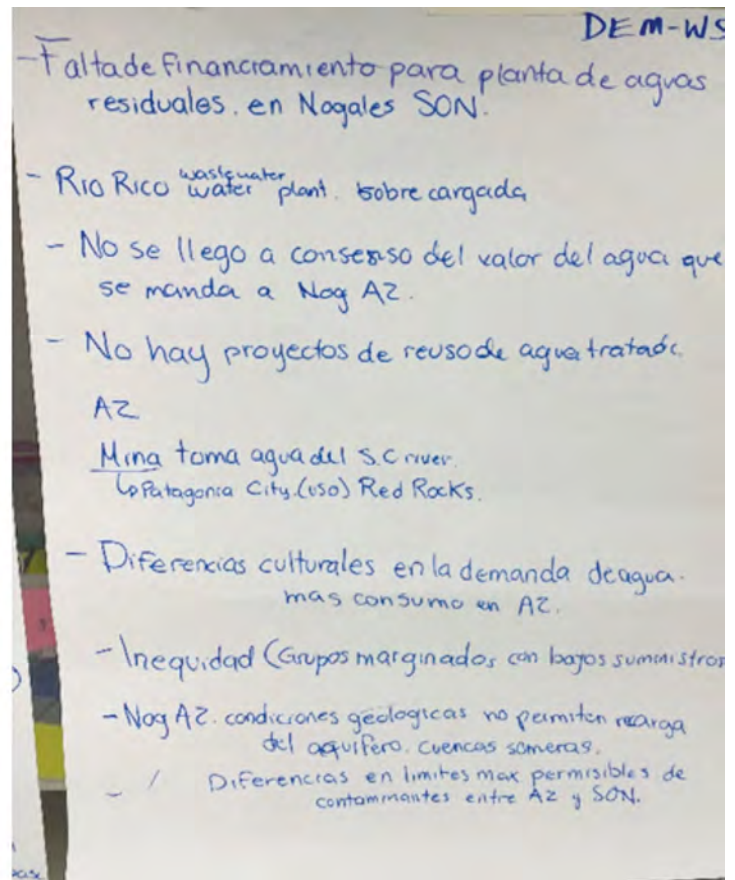 DEM-WS
- Falta de financiamiento para planta de aguas
residuales. en Nogales SON.
- RIO RICO wastewater
water plant. sobre cargada
- No se llego a consenso del valor del agua que
se manda a Nog AZ.
- No hay proyectos de reuso de agua tratada
AZ
Mina toma agua del S.C river.
↳ Patagonia City. (uso) Red Rocks.
- Diferencias culturales en la demanda de agua.
mas consumo en AZ.
- Inequidad (Grupos marginados con bajos suministros
- Nog AZ. condiciones geologicas no permiten recarga
del aquifero. cuencas someras.
- / Diferencias en limites max permisibles de
contaminantes entre AZ y SON.